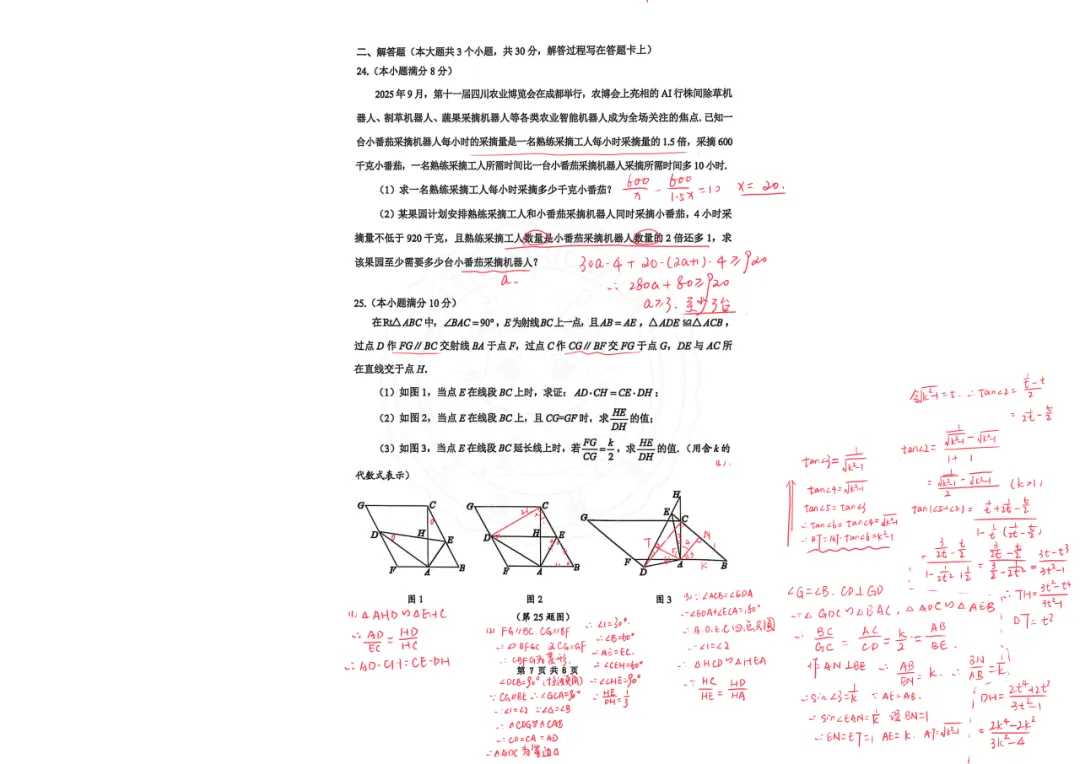 二、解答题（本大题共 3 个小题，共 30 分，解答过程写在答题卡上）
24.（本小题满分 8 分）
2025 年 9 月，第十一届四川农业博览会在成都举行，农博会上亮相的 AI 行株间除草机
器人、割草机器人、蔬果采摘机器人等各类农业智能机器人成为全场关注的焦点. 已知一
台小番茄采摘机器人每小时的采摘量是一名熟练采摘工人每小时采摘量的 1.5 倍，采摘 600
千克小番茄，一名熟练采摘工人所需时间比一台小番茄采摘机器人采摘所需时间多 10 小时.
（1）求一名熟练采摘工人每小时采摘多少千克小番茄？ 600/x - 600/1.5x = 10 x = 20.
（2）某果园计划安排熟练采摘工人和小番茄采摘机器人同时采摘小番茄，4 小时采
摘量不低于 920 千克，且熟练采摘工人数量是小番茄采摘机器人数量的 2 倍还多 1，求
该果园至少需要多少台小番茄采摘机器人？ 30a·4 + 20·(2a+1)·4 ≥ 920
a.
∴ 280a + 80 ≥ 920
a≥3. 至少3台
25.（本小题满分 10 分）
在 Rt△ABC 中，∠BAC = 90°，E 为射线 BC 上一点，且 AB = AE，△ADE ≌ △ACB，
过点 D 作 FG∥BC 交射线 BA 于点 F，过点 C 作 CG∥BF 交 FG 于点 G，DE 与 AC 所
在直线交于点 H.
（1）如图 1，当点 E 在线段 BC 上时，求证：AD·CH = CE·DH；
（2）如图 2，当点 E 在线段 BC 上，且 CG=GF 时，求 HE/DH 的值；
（3）如图 3，当点 E 在线段 BC 延长线上时，若 FG/CG = k/2，求 HE/DH 的值.（用含 k 的
代数式表示）
G C D H E F A B
G C D H E F A B
H E G C T N D F A K B
图 1
图 2
图 3
（第 25 题图）
第 7 页 共 8 页
(1) △AHD∽△EHC
∴ AD/EC = HD/HC
∴ AD·CH = CE·DH
(2) FG∥BC. CG∥BF
∴ CBFG为菱形.
∠DCB=90°
∴ ∠1=∠2 ∵∠G=∠B
∴ △CDG≌△CAB
∴ CD=CA=AD.
∴ △ADC为等边△
∴ ∠1=30°.
∴ ∠B=60°
∵ AE=EC.
∴ ∠CEH=60°
∴ ∠CHE=90°
∴ HE/DH = 1/3
(3) ∵ ∠ACB=∠EDA
∴ ∠EDA+∠ECA=180°
∴ A.D.E.C四点共圆
∴ ∠1=∠2
∴ △HCD∽△HEA
∴ HC/HE = HD/HA
∠G=∠B. CD⊥GD
∴ △GDC∽△BAC, △ADC∽△AEB
∴ BC/GC = AC/CD = k/2 = AB/BE.
作AN⊥BE ∴ AB/BN = k.
∴ sin∠3=1/k ∵ AE=AB.
∴ sin∠EAN=1/k 设BN=1
∴ EN=ET=1 AE=k. AT=√k²-1
tan∠3= 1/√k²-1
tan∠4=√k²-1
tan∠5=tan∠3
∴ tan∠6=tan∠4=√k²-1
∴ DT=AT·tan∠6=k²-1
令√k²-1=t. ∴ tan∠2= (1/t - t)/2
= 1/2t - t/2
tan∠2= (1/√k²-1 - √k²-1)/(1+1)
= (1/√k²-1 - √k²-1)/2 (k>1)
tan(∠5+∠2)= (1/t + 1/2t - t/2)/(1 - 1/t(1/2t - t/2))
= (3/2t - t/2)/(1 - 1/2t² + 1/2) = (3/2t - t/2)/(3/2 - 1/2t²) = (3t-t³)/(3t²-1)
∴ TH= (3t²-t⁴)/(3t²-1)
DT=t²
DH= (2t⁴+2t²)/(3t²-1)
= (2k⁴-2k²)/(3k²-4)